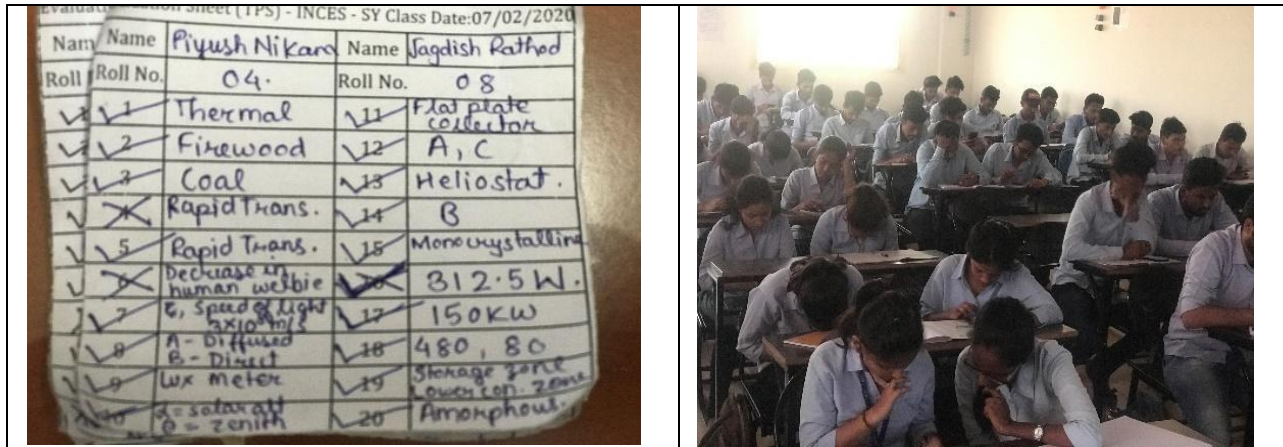 Sheet (TPS) - INCES - SY Class Date:07/02/2020
Nam Name Piyush Nikam Name Jagdish Rathod
Roll Roll No. 04. Roll No. 08
1 Thermal 11 Flat plate collector
2 Firewood 12 A, C
3 Coal 13 Heliostat.
4 Rapid Trans. 14 B
5 Rapid Trans. 15 Monocrystalline
6 Decrease in human welbie 312.5W.
7 Speed of light 3x10 m/s 17 150KW
8 A- Diffused B- Direct 18 480, 80
9 Lux meter 19 Storage zone Lower con. zone
= zenith 20 Amorphous.